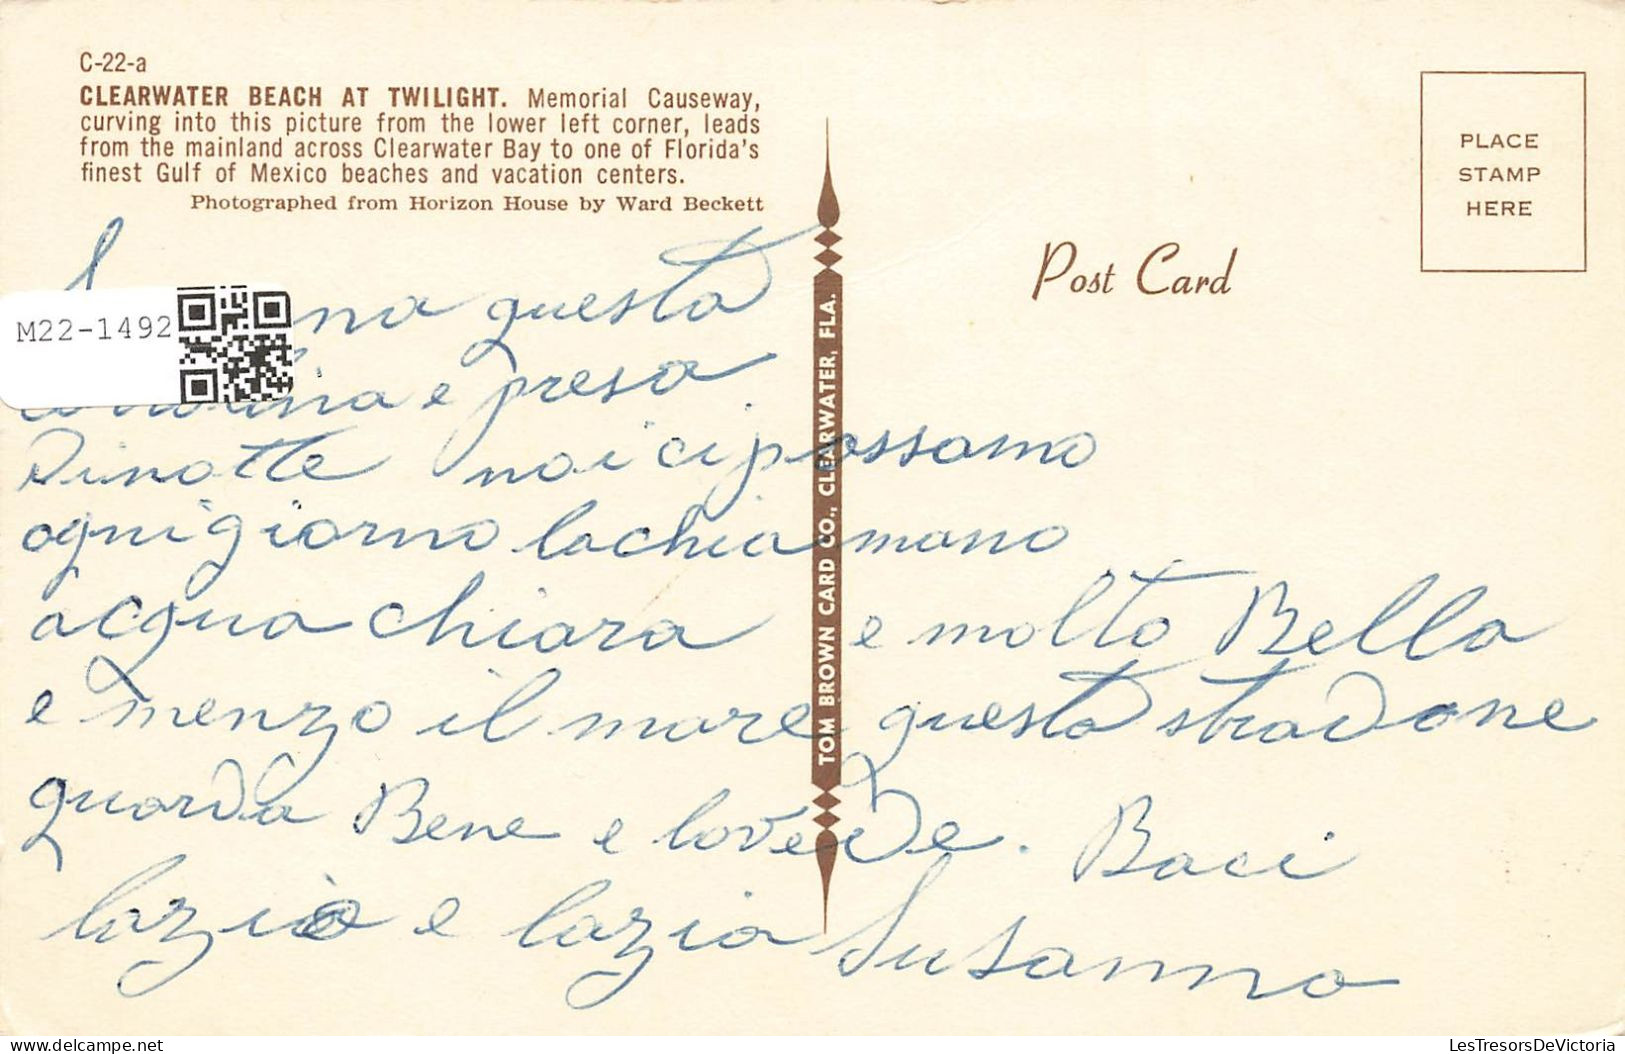 C-22-a
CLEARWATER BEACH AT TWILIGHT. Memorial Causeway,
curving into this picture from the lower left corner, leads
from the mainland across Clearwater Bay to one of Florida's
finest Gulf of Mexico beaches and vacation centers.
Photographed from Horizon House by Ward Beckett
PLACE
STAMP
HERE
Post Card
TOM BROWN CARD CO., CLEARWATER, FLA.
M22-1492
questa
e presa
Dinotte noi ci possamo
ogni giorno lachiamano
acqua chiara e molto Bella
e menzo il mare questa stradone
guarda Bene e lo vede. Baci
lo zio e la zia Susanna
LesTresorsDeVictoria
delcampe.net